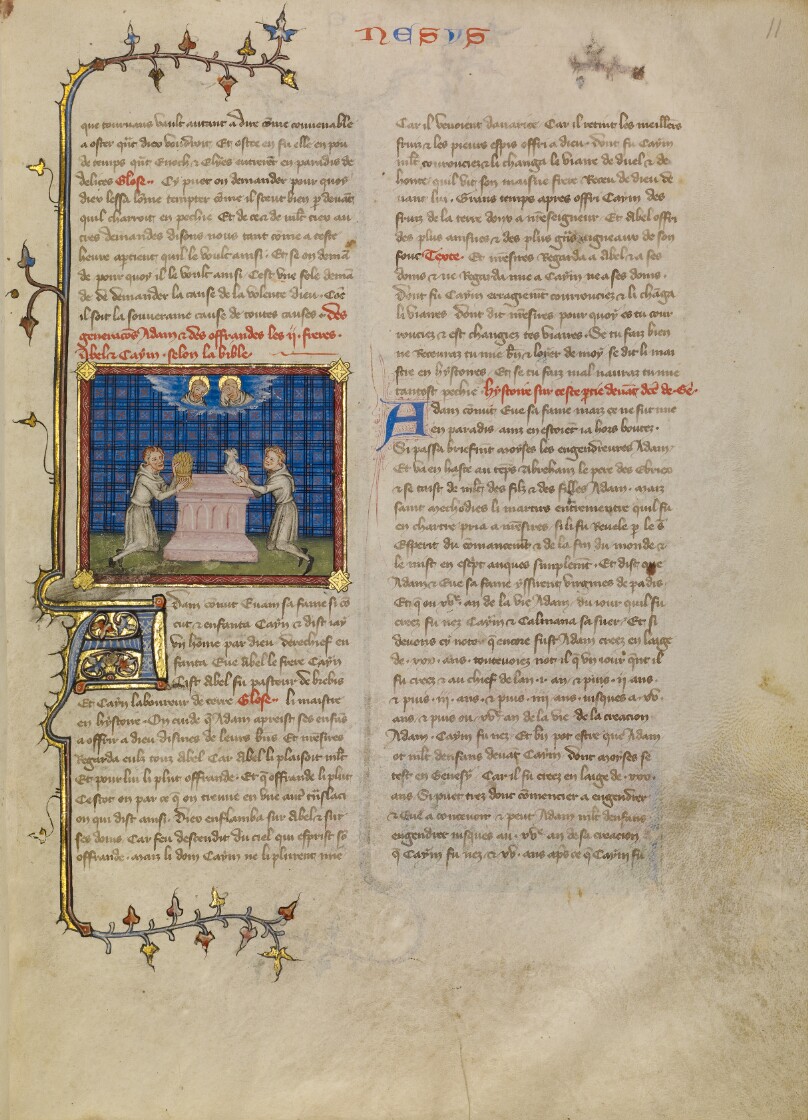 NESVS
11
que tournans vault autant a dire cõme convenable
a oster qñt dieu voudroit Et ostee en fu elle en pou
de temps qñt Enoch & Elyes entrerent en paradis de
delices Glose Cy puet on demander pour quoy
dieu lessa lõme tempter cõme il sceut bien devant
quil charroit en pechie Et de ce a de mlt
tres demandes disons nous tant cõme a ceste
heure aptient quil le voult ainsi Et se on
de pour quoy il le voult ainsi Cest une fole
de de demander la cause de la volente dieu
il soit la souveraine cause de toutes causes des
generacõs Adam & des offrandes les ii freres
Abel & Caym selon la bible
Adam cõnut Evam sa fame si cõ
cut & enfanta Cayn & dist iay
un hõme par dieu derechief en
fanta Eve Abel le frere Cayn
Cist Abel fu pastour de brebis
Et Cayn laboureur de terre Glose li maistre
en hystoire On cuide q̃ Adam apreist ses enfãs
a offrir a dieu disines de leurs biens Et
Regarda en li tour Abel Car Abel li plaisoit mlt
Et pour lui li plut offrande Et q̃ offrande li plut
Cestot on par ce q̃ on treuve en une aut̃ trãslaci
on qui dist ainsi Dieu enflamba sur Abel & sur
ses dons Car feu descendit du ciel qui esprist sõ
offrande mais li don Caym ne li plurent mie
Car il venoient davarice Car il retint les meillers
fruiz & les pieurs espis offri a dieu dont fu Caym
mlt courouciez & li changa le viaire de duel & de
honte quil vit son maisne frere Receu de dieu de
vant lui Grans temps apres offri Caym des
fruiz de la terre dons a nr̃eseigneur Et Abel offri
des plus ainsnes & des plus gras aigneaux de son
fouc Texte Et Regarda a Abel & a ses
dons & ne Regarda mie a Caym ne a ses dons
Dont fu Caym erragiement courrouciez & li chãga
li viaires dont dist pour quoy es tu cour
rouciez & est changiez tes viaires Se tu faiz bien
ne Recevraz tu mie bñ & loyer de moy se dit li mai
stre en hystoires Et se tu faiz mal nauraz tu mie
tantost pechie hystoire sur ceste ptie devãt de Ge
Adam cõnut Eve sa fame maiz ce ne fut mie
en paradis ainz en estoiẽt ia hors boutez
Si passa briefmt moyses les engendreures Adam
Et va en haste au tẽps Abraham le pere des Ebrieu
& se taist de mlt des filz & des filles Adam maiz
saint methodies li martirs entrementre quil fu
en chartre pria a si li fu Revele p le s
Esperit du cõmancemt & de la fin du monde &
le mist en escpt auques simplemt Et dist que
Adam & Eve sa fame yssirent virgines de padis
Et q̃ ou xvᵉ an de la vie Adam du iour quil fu
creez fu nez Caym & Calmana sa suer Et si
devons cy noter q̃ encore fust Adam creez en laage
de xxx ans toutevoiez not il q̃ un iour qñt il
fu creez & au chief de lan i an & puis ii ans
& puis iii ans & puis iiii ans iusques a xv
ans & puis ou xvᵉ an de la vie de la creacion
Adam Caym fu nez Et biẽ pot estre que Adam
ot mlt denfans devãt Caym dont moyses se
test en Genesy Car il fu creez en laage de xxx
ans Si puet trez dont cõmencier a engendrer
& Eve a concevoir & peut Adam mlt denfans
engendrer iusques au xvᵉ an de sa creacion
q̃ Caym fu nez & xv ans aps ce q̃ Caym fu